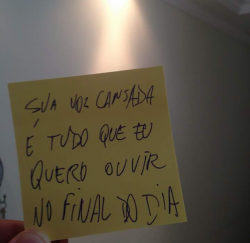 SUA VOZ CANSADA
É TUDO QUE EU
QUERO OUVIR
NO FINAL DO DIA